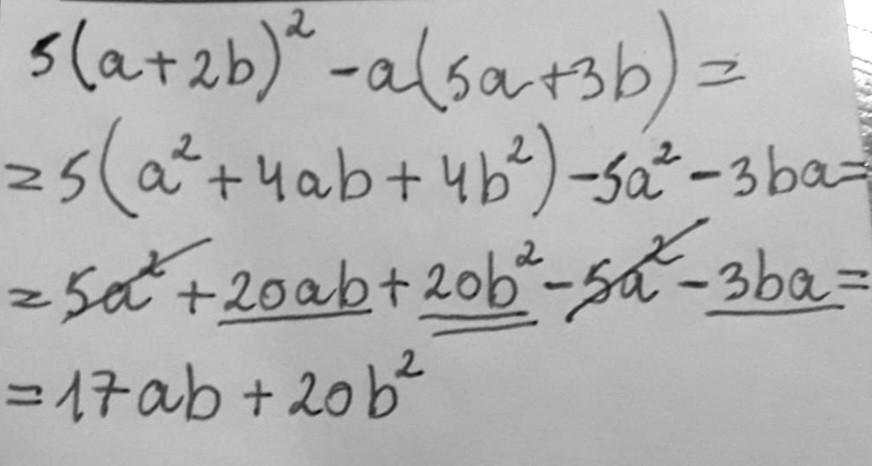 5(a+2b)² -a(5a+3b) =
=5(a²+4ab+4b²)-5a²-3ba=
=5a²+20ab+20b²-5a²-3ba=
=17ab+20b²